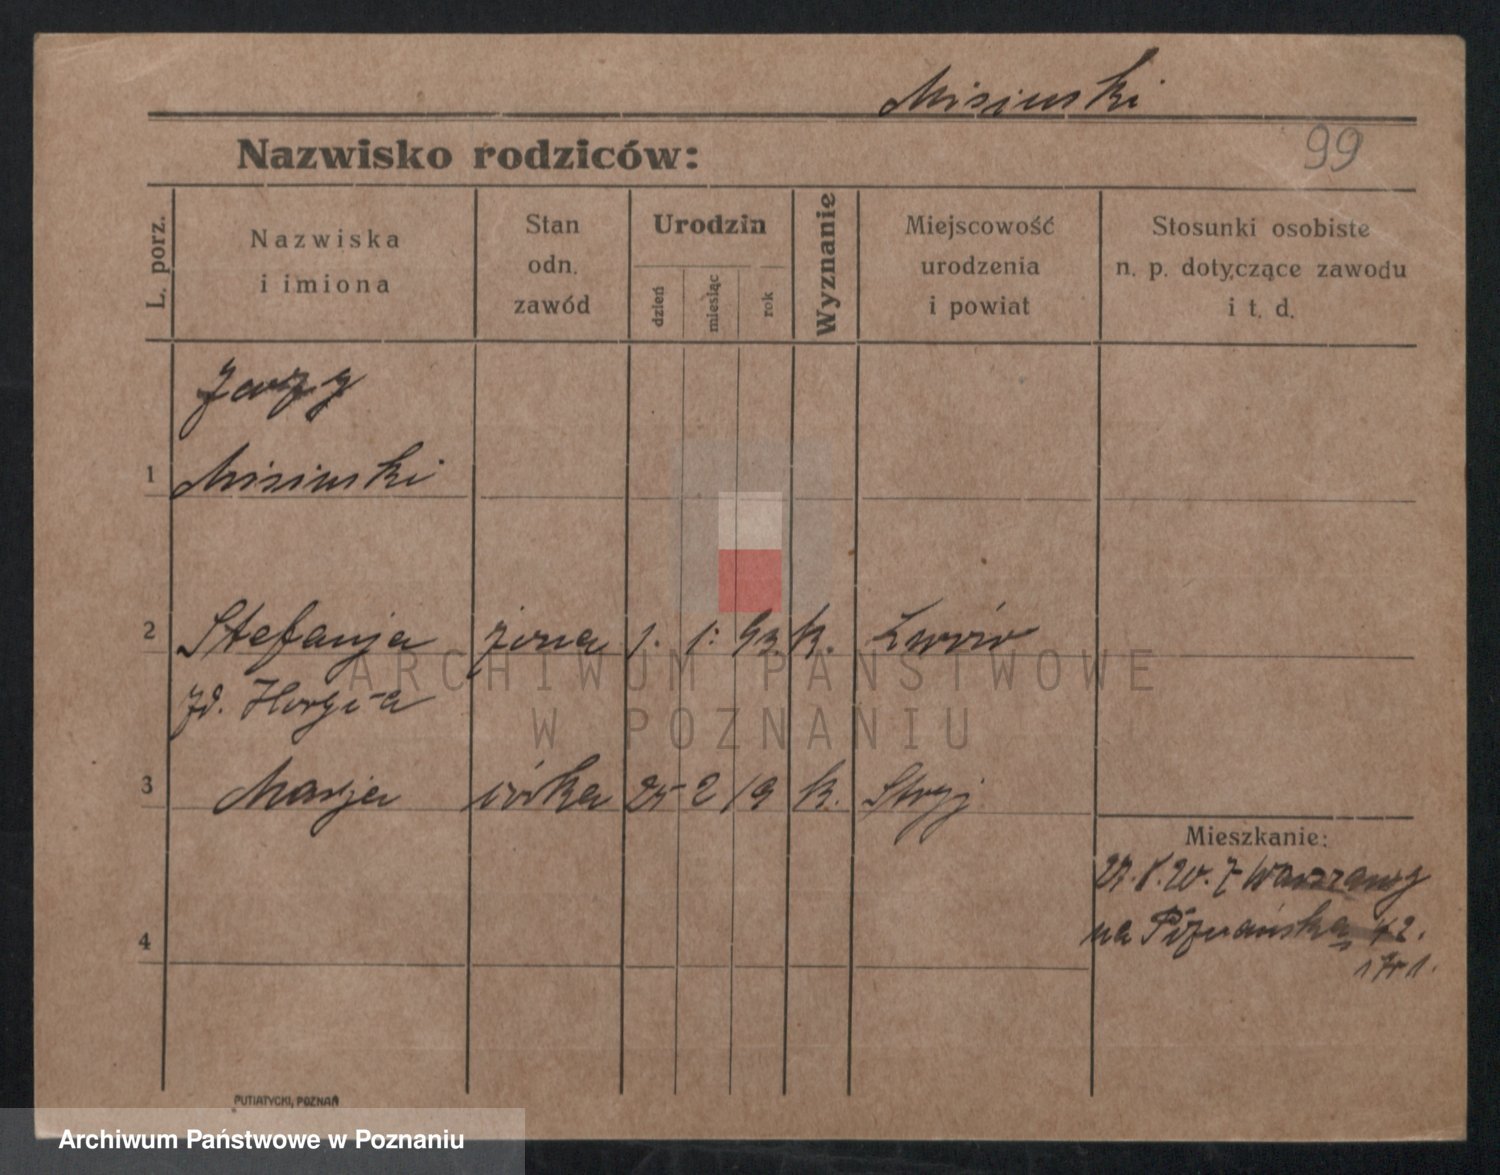 Misinski
99
Nazwisko rodziców:
L. porz.
Nazwiska
i imiona
Stan
odn.
zawód
Urodzin
dzień
miesiąc
rok
Wyznanie
Miejscowość
urodzenia
i powiat
Stosunki osobiste
n. p. dotyczące zawodu
i t. d.
Jerzy
1 Misinski
2 Stefanja żona 1. 1. 93. k. Lwów
zd.
3 Marja córka 25 2 19 k. Stryj
Mieszkanie:
27. 8. 20. z Warszawy
na Poznańska 42.
4
PUTIATYCKI, POZNAŃ
ARCHIWUM PAŃSTWOWE
W POZNANIU
Archiwum Państwowe w Poznaniu